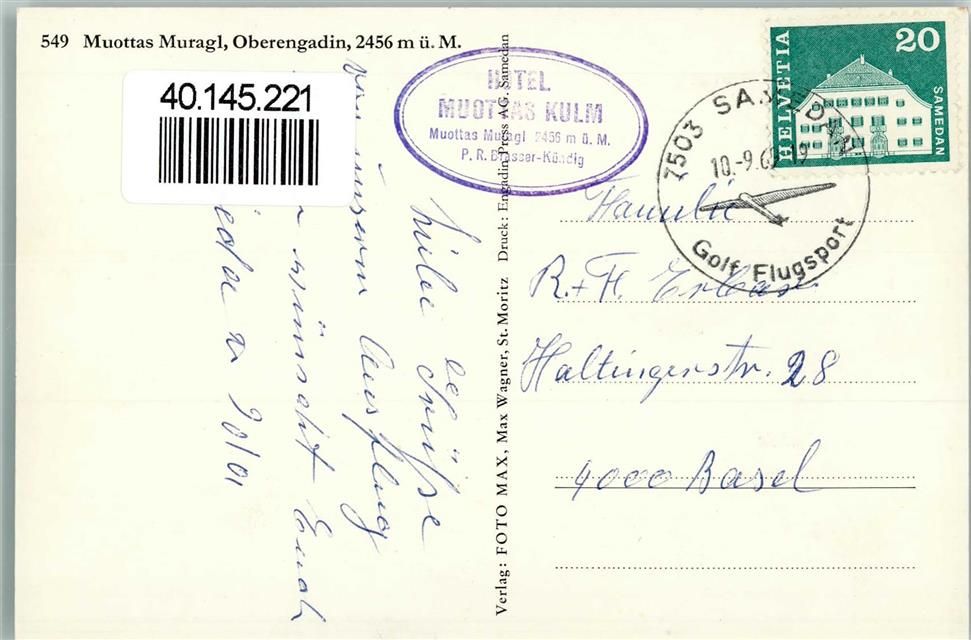 549 Muottas Muragl, Oberengadin, 2456 m ü. M.
40.145.221
HOTEL
MUOTTAS KULM
Muottas Muragl 2456 m ü. M.
P. R. Brasser-Kündig
HELVETIA
20
SAMEDAN
7503 SAMEDAN
10.-9.6
Golf Flugsport
Familie
R. + H.
Haltingerstr. 28
4000 Basel
Verlag: FOTO MAX, Max Wagner, St. Moritz Druck: Engadin Press AG, Samedan
Grüsse
von unserm Ausflug
wünscht Euch